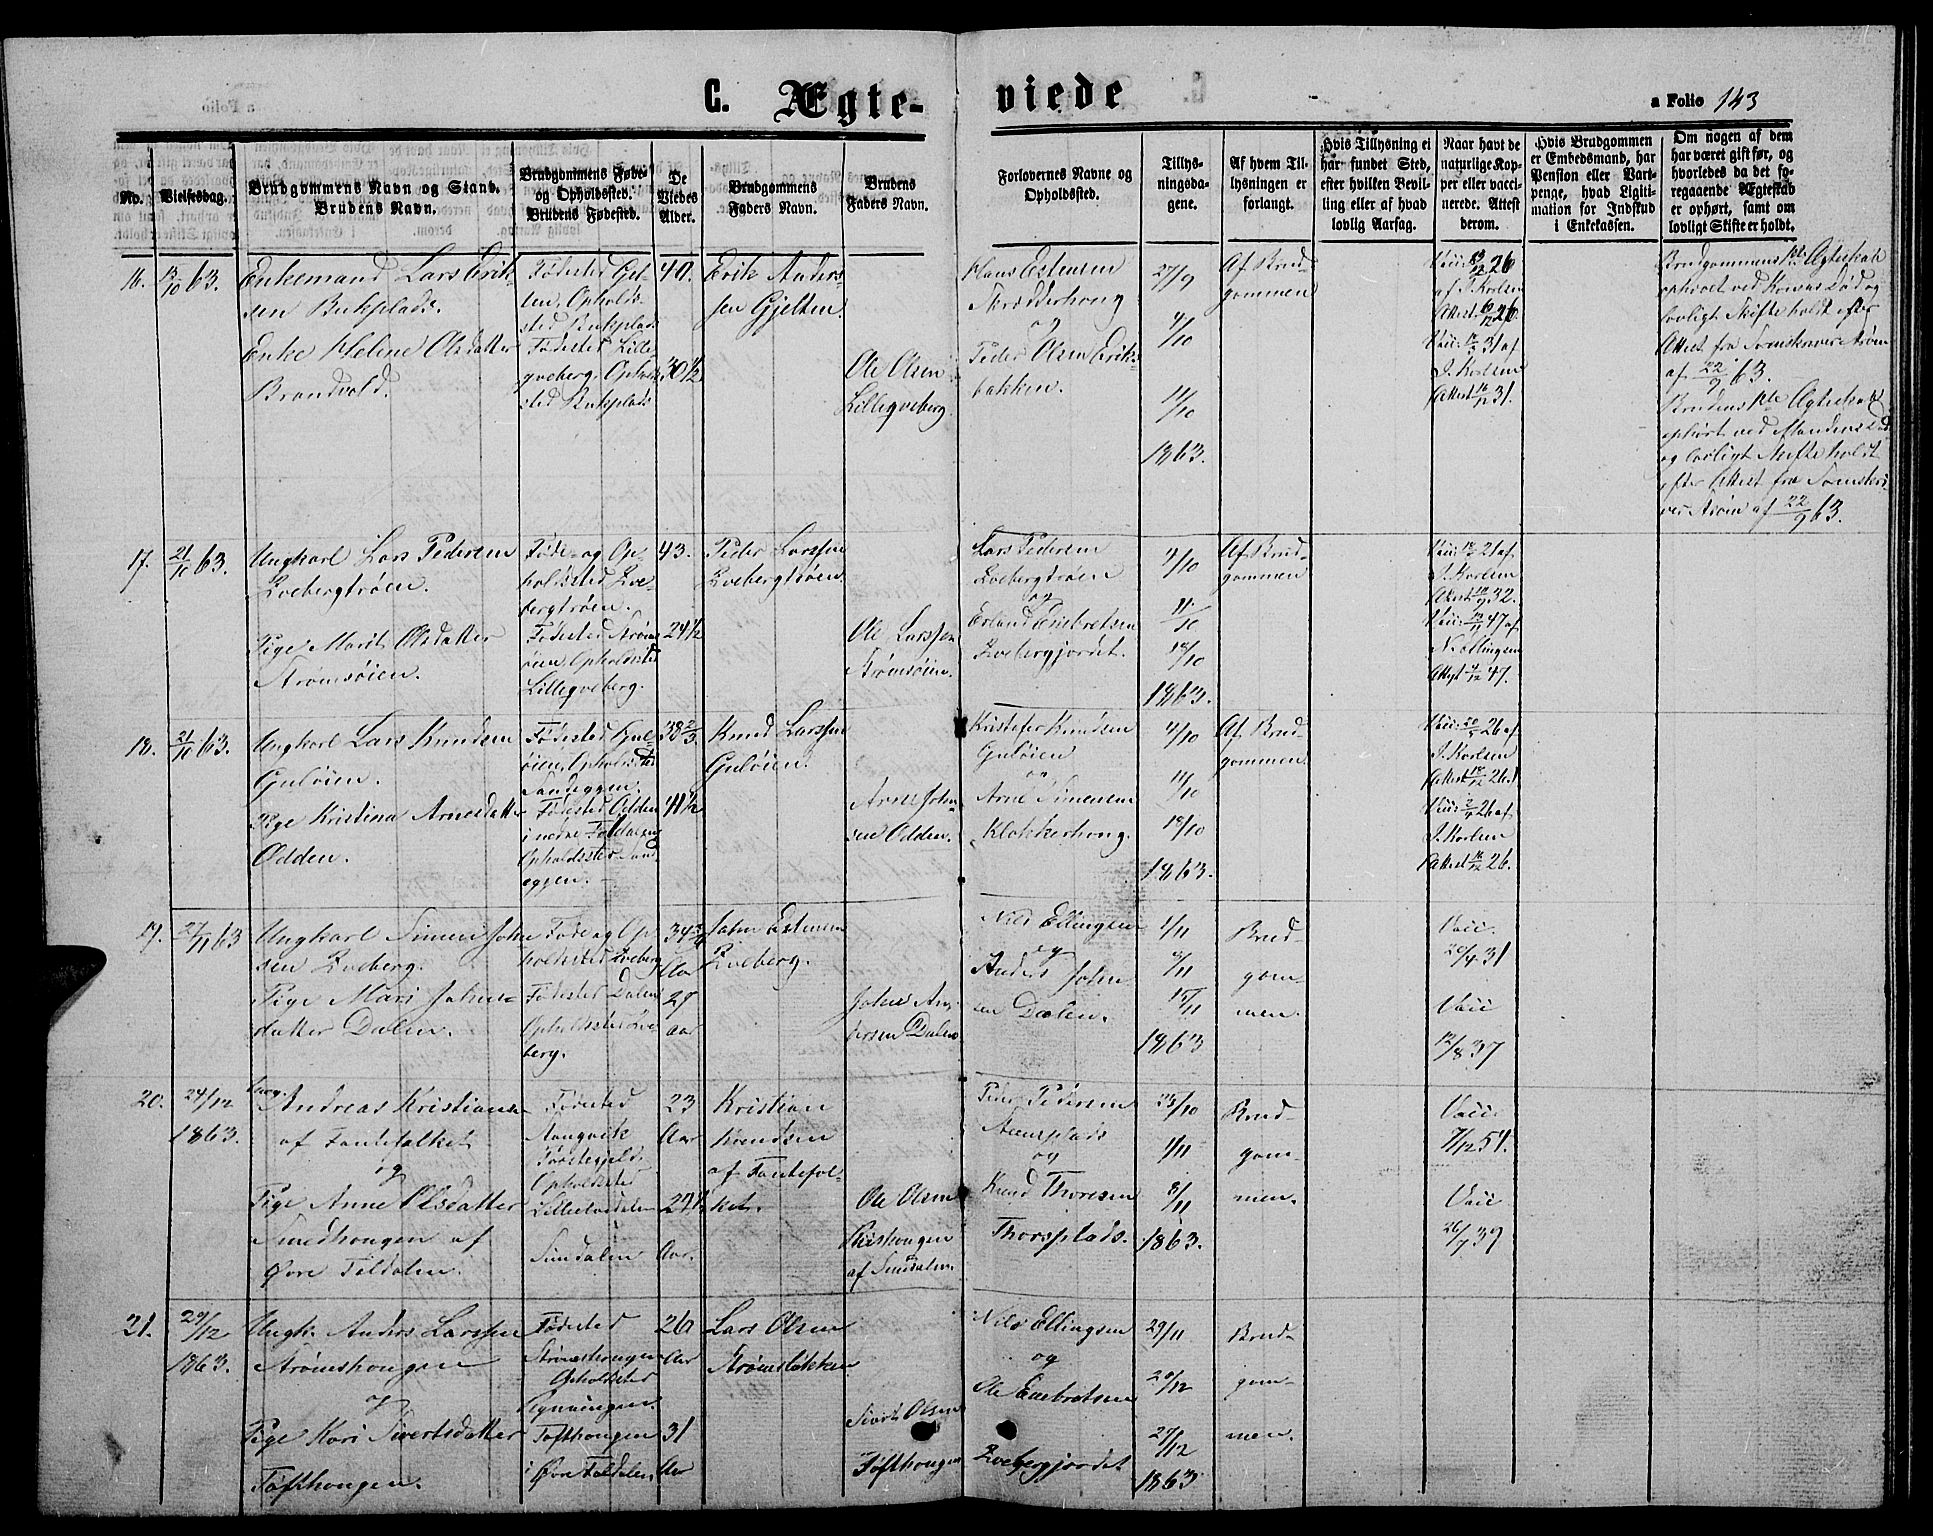 C. Ægte-
viede
a Folio 143
No.
Vielsesdag.
Brudgommens Navn og Stand.
Brudens Navn.
Brudgommens Føde-
og Opholdssted.
Brudens Fødested.
De
Viedes
Alder.
Brudgommens
Faders Navn.
Brudens
Faders Navn.
Forlovernes Navne og
Opholdssted.
Tillys-
ningsda-
gene.
Af hvem Til-
lysningen er
forlangt.
Hvis Tillysning ei
har fundet Sted,
efter hvilken Bevil-
ling eller af hvad
lovlig Aarsag.
Naar havt de
naturlige Kop-
per eller vacci-
nerede. Attest
derom.
Hvis Brudgommen
er Embedsmand, har
Pension eller Vart-
penge, hvad Ligiti-
mation for Indskud
i Enkekassen.
Om nogen af dem
har været gift før, og
hvorledes da det fo-
regaaende Ægteskab
er ophørt, samt om
lovligt Skifte er holdt.
16.
13/10 63.
Enkemand Lars Erik-
sen Bukplads.
Enke Helene Olsdatter
Brandvold.
Fødested Gjel-
ten. Opholds-
sted Bukplads
Fødested Lille-
qveberg. Opholds-
sted Bukplads
40.
30 1/2
Erik Anders-
sen Gjelten.
Ole Olsen
Lilleqveberg.
Hans Estensen
Trædderhong
og
Peder Olsen Eriks-
bakken.
27/9
4/10
11/10
1863.
Af Brud-
gommen
26
af J. Korlsen
Attest 26.
31 af
J. Korlsen
Attest 31.
Brudgommens 1ste Ægteskab
ophævet ved Konens Død og
lovligt Skifte holdt efter
Attest fra Sorenskriver Strøm
af 22/9 63.
Brudens 1ste Ægteskab
ophørt ved Mandens Død
og lovligt Skifte holdt
efter Attest fra Sorenskri-
ver Strøm af 22/9 63.
17.
21/10 63.
Ungkarl Lars Pedersen
Qvebergtrøen.
Pige Marit Olsdatter
Strømsøien.
Føde- og Op-
holdssted Qve-
bergtrøen.
Fødested Strøms-
øien. Opholdssted
Lilleqveberg.
43.
24 1/2
Peder Larssen
Qvebergtrøen.
Ole Larssen
Strømsøien.
Lars Pedersen
Qvebergtrøen
og
Erland Enebretsen
Qvebergjordet.
4/10
11/10
18/10
1863.
Af Brud-
gommen
21 af
J. Korlsen
Attest 32.
47 af
N. Ellingsen
Attest 47.
18.
21/10 63.
Ungkarl Lars Knudsen
Guløien.
Pige Kristina Arnesdatter
Odden.
Fødested Gul-
øien. Opholdssted
Sandeggen.
Fødested Odden
i nedre Foldalen
Opholdssted San-
eggen.
38 2/3
41 1/2
Knud Larssen
Guløien.
Arne John-
sen Odden.
Kristofer Knudsen
Guløien
og
Arne Simensen
Klokkerhong.
4/10
11/10
18/10
1863.
Af Brud-
gommen
26 af
J. Korlsen
Attest 26.
26 af
J. Korlsen
Attest 26.
19.
27/11 63
Ungkarl Simen John-
sen Qveberg.
Pige Mari Johns-
datter Dalen.
Føde og Op-
holdssted Qveberg
Fødested Dalen
Opholdssted Qve-
berg.
34 3/4
Aar
27
aar
John Estensen
Qveberg.
John An-
dersen Dalen
Nils Ellingsen
og
Anders John-
sen Dalen.
1/11
8/11
15/11
1863
Brud-
gom-
men.
Vacc.
20/4 31
Vacc
12/8 37
20.
24/12
1863.
Andreas Kristiansen
af Fantefolket
og
Pige Anne Olsdatter
Smedhougen af
Øvre Foldalen.
Fødested
Aangvik
Opholdssted
Lilleelvedalen
Sundalen
23
Aar
27 1/2
Aar.
Kristian
Knudsen
af Fantefol-
ket.
Ole Olsen
af Sundalen.
Peder Pedersen
og
Knud Thoresen
Thorsplads.
25/10
1/11
8/11
1863.
Brud-
gom-
men.
Vacc.
7/12 51.
Vacc
26/7 39
21.
29/12
1863.
Ungk. Anders Larssen
Strømshougen
og
Pige Kari Sivertsdatter
Tofthougen.
Fødested
Strømshougen
Opholdssted
Tofthougen
i Øvre Foldalen
26
Aar
31
Aar
Lars Olsen
Strømsløkken
Sivert Olsen
Tofthougen
Nils Ellingsen
og
Ole Enebretsen
Qvebergjordet
29/11
20/12
27/12
1863
Brud-
gom-
men.